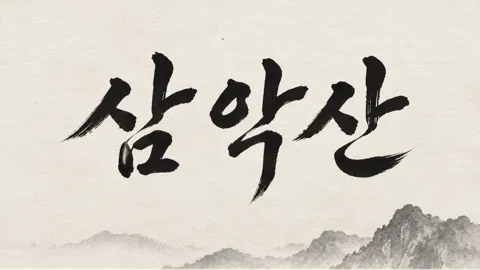 삼악산